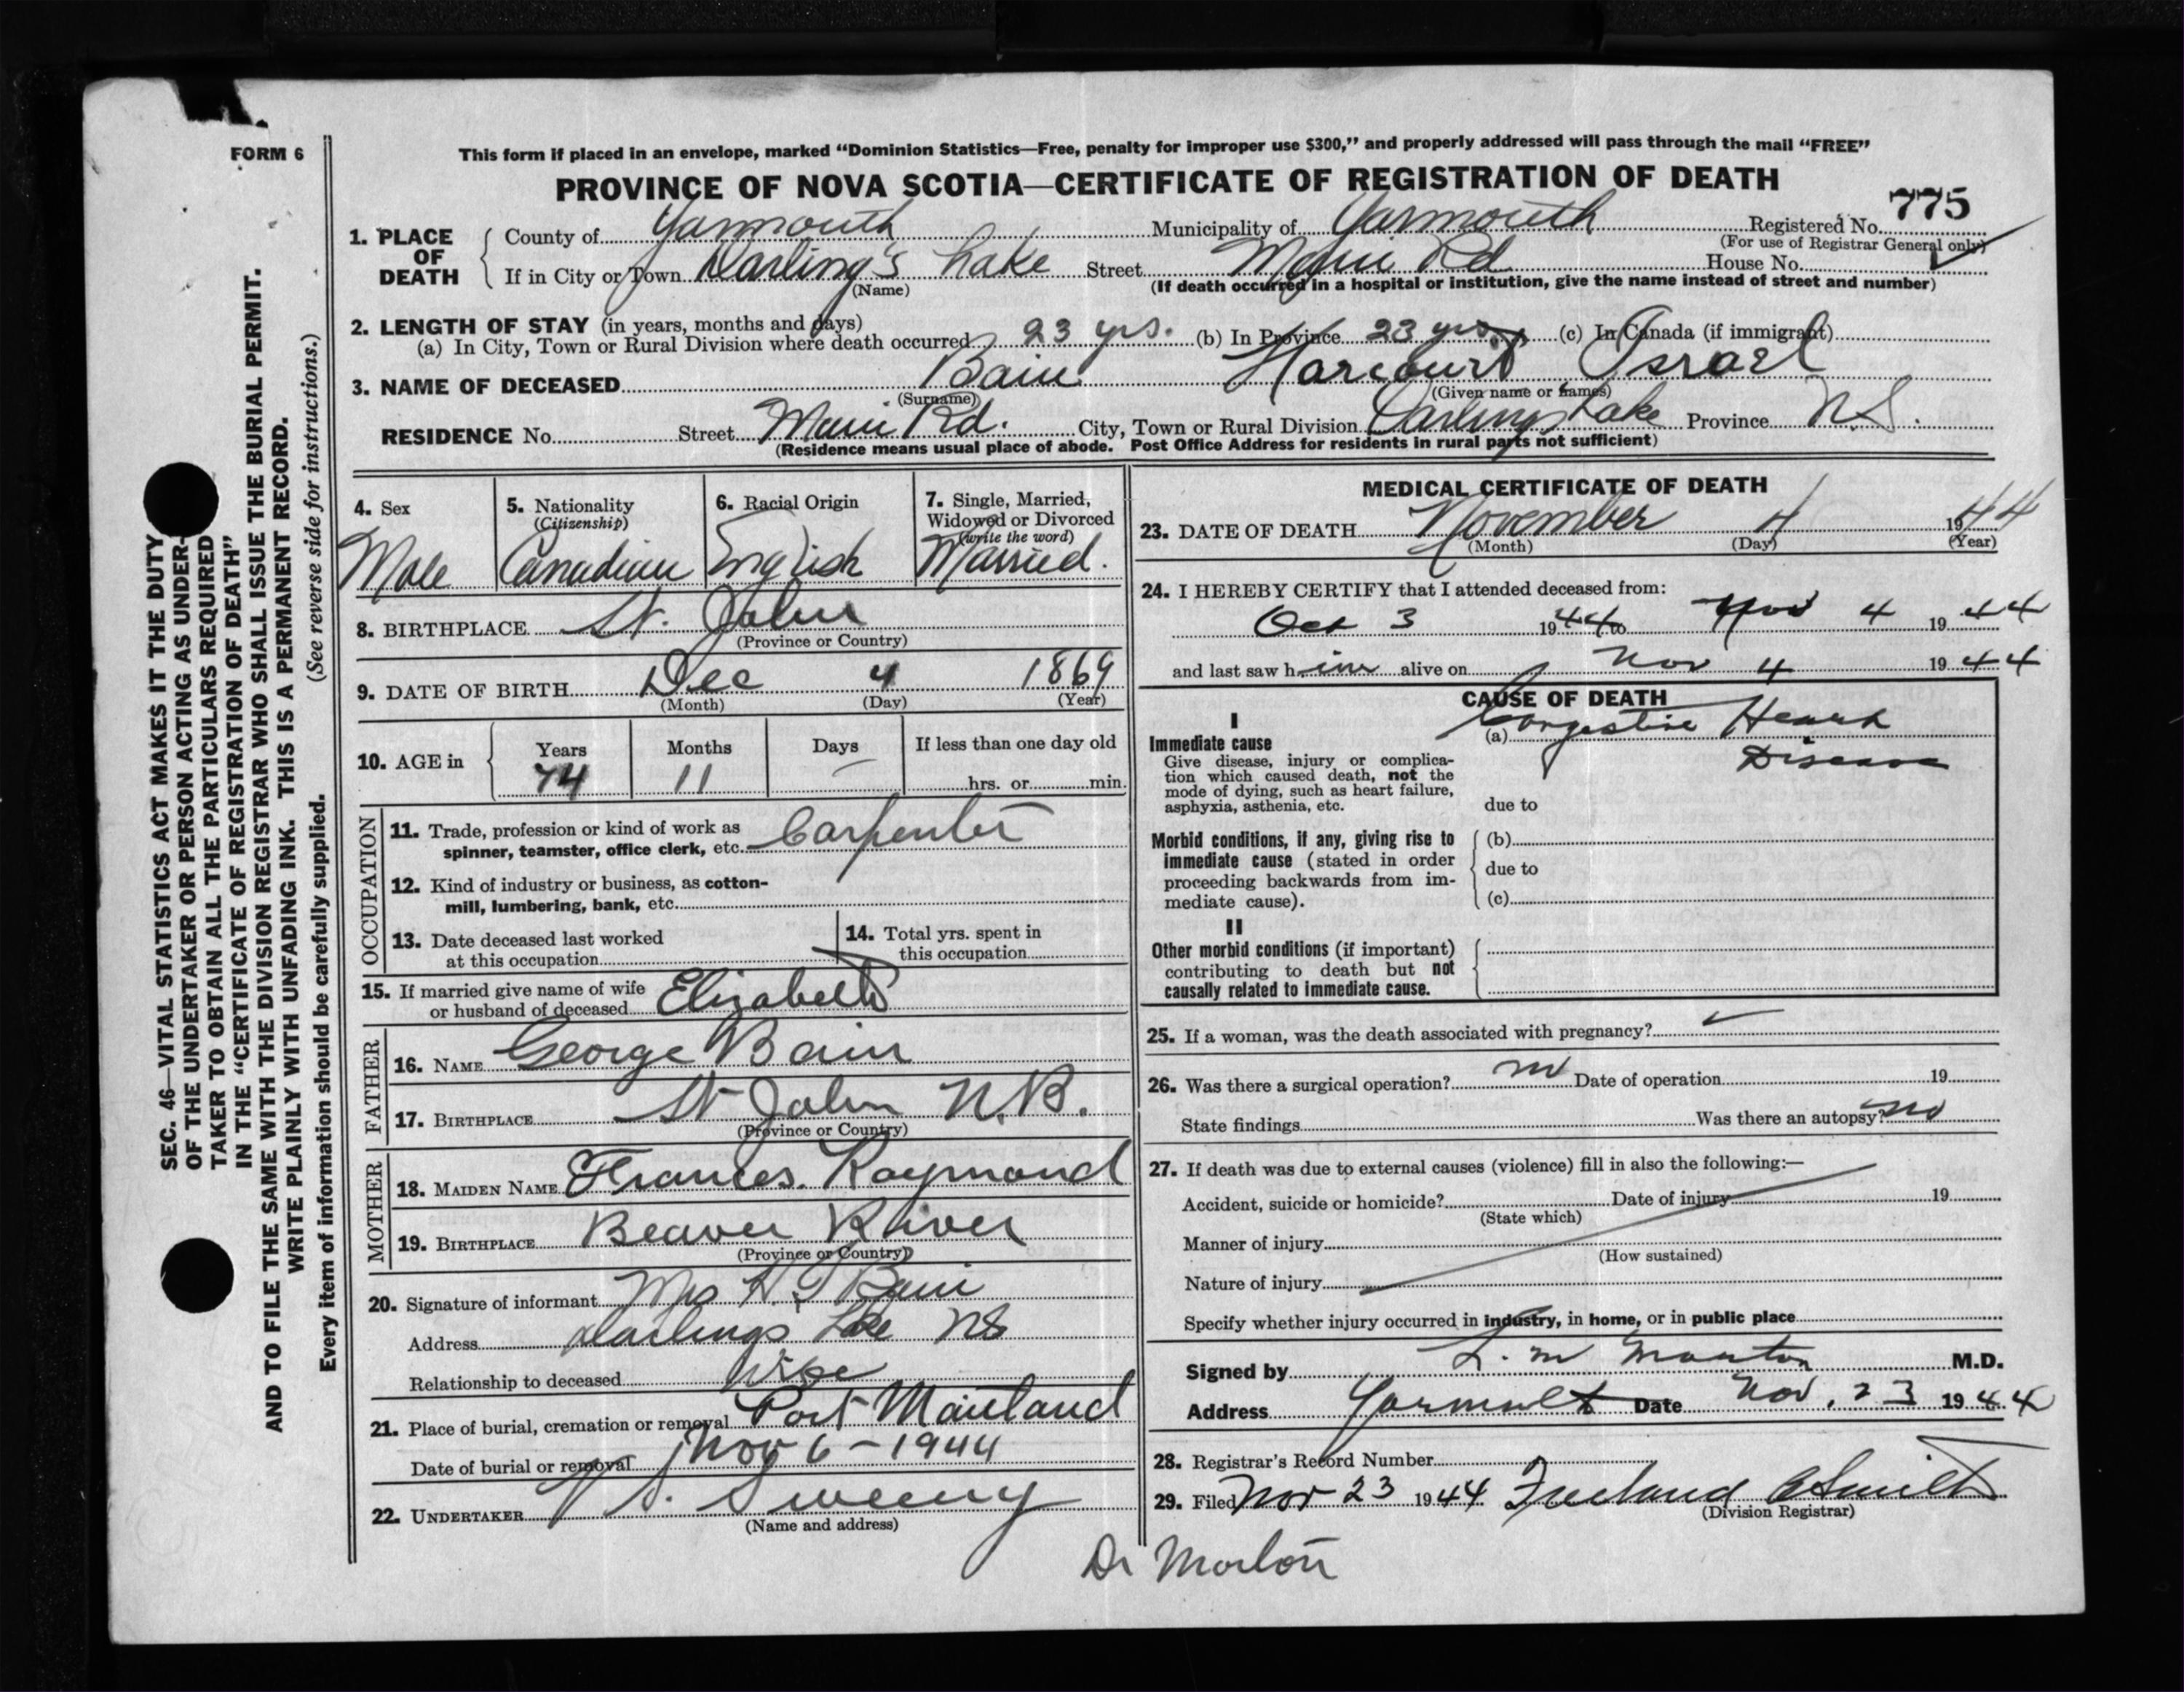 FORM 6
This form if placed in an envelope, marked “Dominion Statistics—Free, penalty for improper use $300,” and properly addressed will pass through the mail “FREE”
PROVINCE OF NOVA SCOTIA—CERTIFICATE OF REGISTRATION OF DEATH
775
1. PLACE OF DEATH County of Yarmouth Municipality of Yarmouth Registered No.
(For use of Registrar General only)
If in City or Town Darling's Lake Street Main Rd House No.
(Name) (If death occurred in a hospital or institution, give the name instead of street and number)
2. LENGTH OF STAY (in years, months and days)
(a) In City, Town or Rural Division where death occurred 23 yrs. (b) In Province 23 yrs. (c) In Canada (if immigrant)
3. NAME OF DECEASED Bain Harcourt Israel
(Surname) (Given name or names)
RESIDENCE No. Street Main Rd. City, Town or Rural Division Darlings Lake Province N.S.
(Residence means usual place of abode. Post Office Address for residents in rural parts not sufficient)
4. Sex
Male
5. Nationality
(Citizenship)
Canadian
6. Racial Origin
English
7. Single, Married,
Widowed or Divorced
(write the word)
Married.
8. BIRTHPLACE St. John
(Province or Country)
9. DATE OF BIRTH Dec 4 1869
(Month) (Day) (Year)
10. AGE in Years Months Days If less than one day old
74 11 — hrs. or min.
OCCUPATION
11. Trade, profession or kind of work as
spinner, teamster, office clerk, etc. Carpenter
12. Kind of industry or business, as cotton-
mill, lumbering, bank, etc.
13. Date deceased last worked
at this occupation
14. Total yrs. spent in
this occupation
15. If married give name of wife
or husband of deceased Elizabeth
FATHER
16. NAME George Bain
17. BIRTHPLACE St John N.B.
(Province or Country)
MOTHER
18. MAIDEN NAME Frances Raymond
19. BIRTHPLACE Beaver River
(Province or Country)
20. Signature of informant Mrs H. I Bain
Address Darlings Lake NS
Relationship to deceased Wife
21. Place of burial, cremation or removal Port Maitland
Date of burial or removal Nov 6 - 1944
22. UNDERTAKER V. S. Sweeny
(Name and address)
MEDICAL CERTIFICATE OF DEATH
23. DATE OF DEATH November 4 1944
(Month) (Day) (Year)
24. I HEREBY CERTIFY that I attended deceased from:
Oct 3 1944 to Nov 4 1944
and last saw him alive on Nov 4 1944
CAUSE OF DEATH
I
Immediate cause
Give disease, injury or complica-
tion which caused death, not the
mode of dying, such as heart failure,
asphyxia, asthenia, etc.
(a) Congestive Heart
Disease
due to
Morbid conditions, if any, giving rise to
immediate cause (stated in order
proceeding backwards from im-
mediate cause).
(b)
due to
(c)
II
Other morbid conditions (if important)
contributing to death but not
causally related to immediate cause.
25. If a woman, was the death associated with pregnancy?
26. Was there a surgical operation? no Date of operation 19
State findings Was there an autopsy? no
27. If death was due to external causes (violence) fill in also the following:—
Accident, suicide or homicide? Date of injury 19
(State which)
Manner of injury
(How sustained)
Nature of injury
Specify whether injury occurred in industry, in home, or in public place
Signed by L. M Morton M.D.
Address Yarmouth Date Nov. 23 1944
28. Registrar's Record Number
29. Filed Nov 23 1944 Freeland Smith
(Division Registrar)
Dr Morton
SEC. 46—VITAL STATISTICS ACT MAKES IT THE DUTY
OF THE UNDERTAKER OR PERSON ACTING AS UNDER-
TAKER TO OBTAIN ALL THE PARTICULARS REQUIRED
IN THE “CERTIFICATE OF REGISTRATION OF DEATH”
AND TO FILE THE SAME WITH THE DIVISION REGISTRAR WHO SHALL ISSUE THE BURIAL PERMIT.
WRITE PLAINLY WITH UNFADING INK. THIS IS A PERMANENT RECORD.
Every item of information should be carefully supplied. (See reverse side for instructions.)